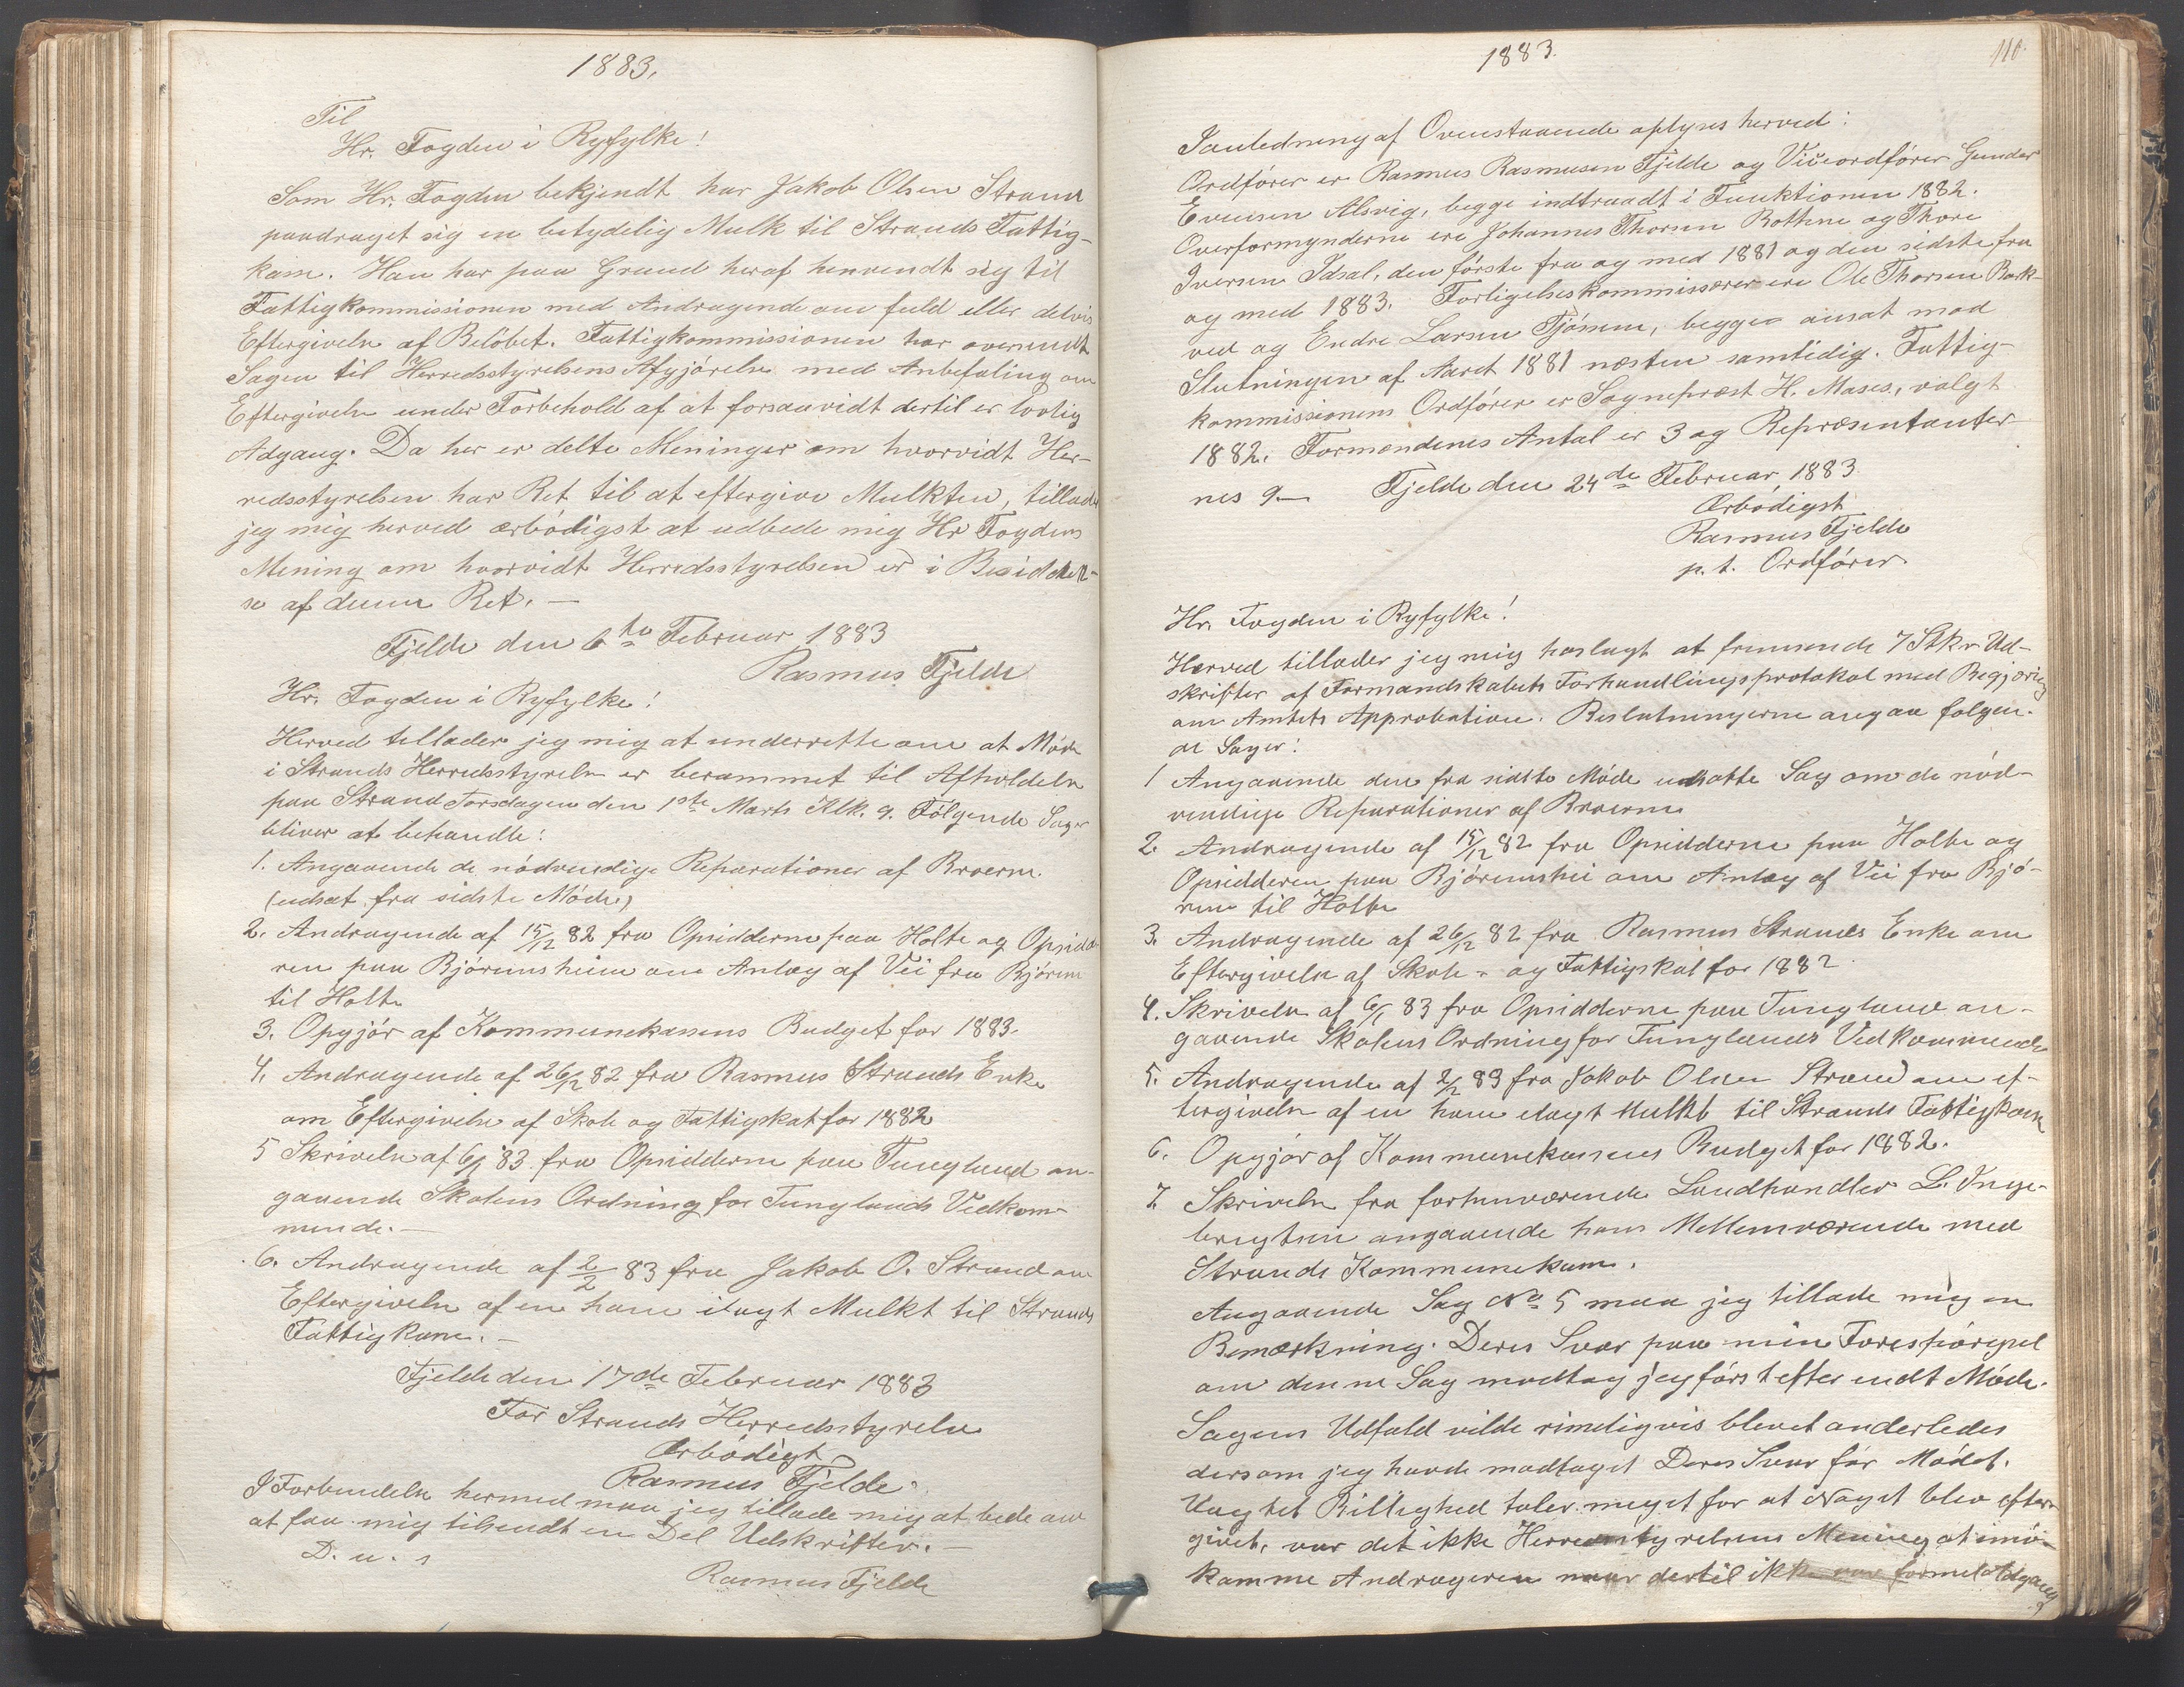 1883.
Til
Hr. Fogden i Ryfylke!
Som Hr. Fogden bekjendt har Jakob Olsen Strand
paadraget sig en betydelig Mulk til Strands Fattig-
kasse. Han har paa Grund heraf henvendt sig til
Fattigkommissionen med Andragende om fuld eller delvis
Eftergivelse af Belöbet. Fattigkommissionen har oversendt
Sagen til Herredsstyrelsens Afgjörelse med Anbefaling om
Eftergivelse under Forbehold af at forsaavidt dertil er lovlig
Adgang. Da her er delte Meninger om hvorvidt Her-
redsstyrelsen har Ret til at eftergive Mulkten, tillader
jeg mig herved ærbödigst at udbede mig Hr Fogdens
Mening om hvorvidt Herredsstyrelsen er i Besiddel-
se af denne Ret. —
Fjelde den 6te Februar 1883
Rasmus Fjelde
Hr. Fogden i Ryfylke!
Herved tillader jeg mig at underrette om at Möde
i Strands Herredsstyrelse er berammet til Afholdelse
paa Strand Torsdagen den 1ste Marts Klk. 9. Fölgende Sager
bliver at behandle:
1. Angaaende de nödvendige Reparationer af Broerne.
(udsat fra sidste Möde)
2. Andragende af 15/12 82 fra Opsidderne paa Holte og Opsidde-
ren paa Björeimsheien om Anlæg af Vei fra Björeim
til Holte
3. Opgjör af Kommunekassens Budget for 1883.
4. Andragende af 26/12 82 fra Rasmus Strands Enke
om Eftergivelse af Skole og Fattigskat for 1882
5 Skrivelse af 6/1 83 fra Opsidderne paa Tungland an-
gaaende Skolens Ordning for Tunglands Vedkom-
mende. —
6. Andragende af 2/2 83 fra Jakob O. Strand om
Eftergivelse af en ham ilagt Mulkt til Strands
Fattigkasse. —
Fjelde den 17de Februar 1883
For Strands Herredsstyrelse
Ærbödigst
Rasmus Fjelde.
I Forbindelse hermed maa jeg tillade mig at bede om
at faa mig tilsendt en Del Udskrifter. —
D. u. s
Rasmus Fjelde
1883.
110.
I anledning af Ovenstaaende oplyses herved:
Ordförer er Rasmus Rasmusen Fjelde og Viceordförer Gunder
Evensen Alsvig, begge indtraadt i Funktionen 1882.
Overformynderne ere Johannes Thorsen Bothne og Thore
Iversen Idsal, den förste fra og med 1881 og den sidste fra
og med 1883. Forligelseskommissærer ere Ole Thorsen Bark-
ved og Endre Larsen Tjössem, begge ansat mod
Slutningen af Aaret 1881 næsten samtidig. Fattig-
kommissionens Ordförer er Sognepræst H. Mases, valgt
1882. Formændenes Antal er 3 og Repræsentanter-
nes 9. — Fjelde den 24de Februar 1883.
Ærbödigst
Rasmus Fjelde
p. t. Ordförer.
Hr. Fogden i Ryfylke!
Herved tillader jeg mig hoslagt at fremsende 7 Stkr Ud-
skrifter af Formandskabets Forhandlingsprotokol med Begjæring
om Amtets Approbation. Beslutningerne angaa fölgen-
de Sager:
1 Angaaende den fra sidste Möde udsatte Sag om de nöd-
vendige Reparationer af Broerne
2. Andragende af 15/12 82 fra Opsidderne paa Holte og
Opsidderen paa Björeimshei om Anlæg af Vei fra Bjö-
reim til Holte
3. Andragende af 26/12 82 fra Rasmus Strands Enke om
Eftergivelse af Skole- og Fattigskat for 1882
4. Skrivelse af 6/1 83 fra Opsidderne paa Tungland an-
gaaende Skolens Ordning for Tunglands Vedkommende
5. Andragende af 2/2 83 fra Jakob Olsen Strand om ef-
tergivelse af en ham ilagt Mulkt til Strands Fattigkasse
6. Opgjör af Kommunekassens Budget for 1882.
7. Skrivelse fra forhenværende Landhandler L. Inge-
brigtsen angaaende hans Mellemværende med
Strands Kommunekasse.
Angaaende Sag No 5 maa jeg tillade mig en
Bemærkning. Deres Svar paa min Forespörgsel
om denne Sag modtog jeg först efter endt Möde.
Sagens Udfald vilde rimeligvis blevet anderledes
dersom jeg havde modtaget Deres Svar för Mödet.
Uagtet Billighed taler meget for at Noget blev efter-
givet, var det ikke Herredsstyrelsens Mening at imö-
komme Andrageren naar dertil ikke var formel Adgang